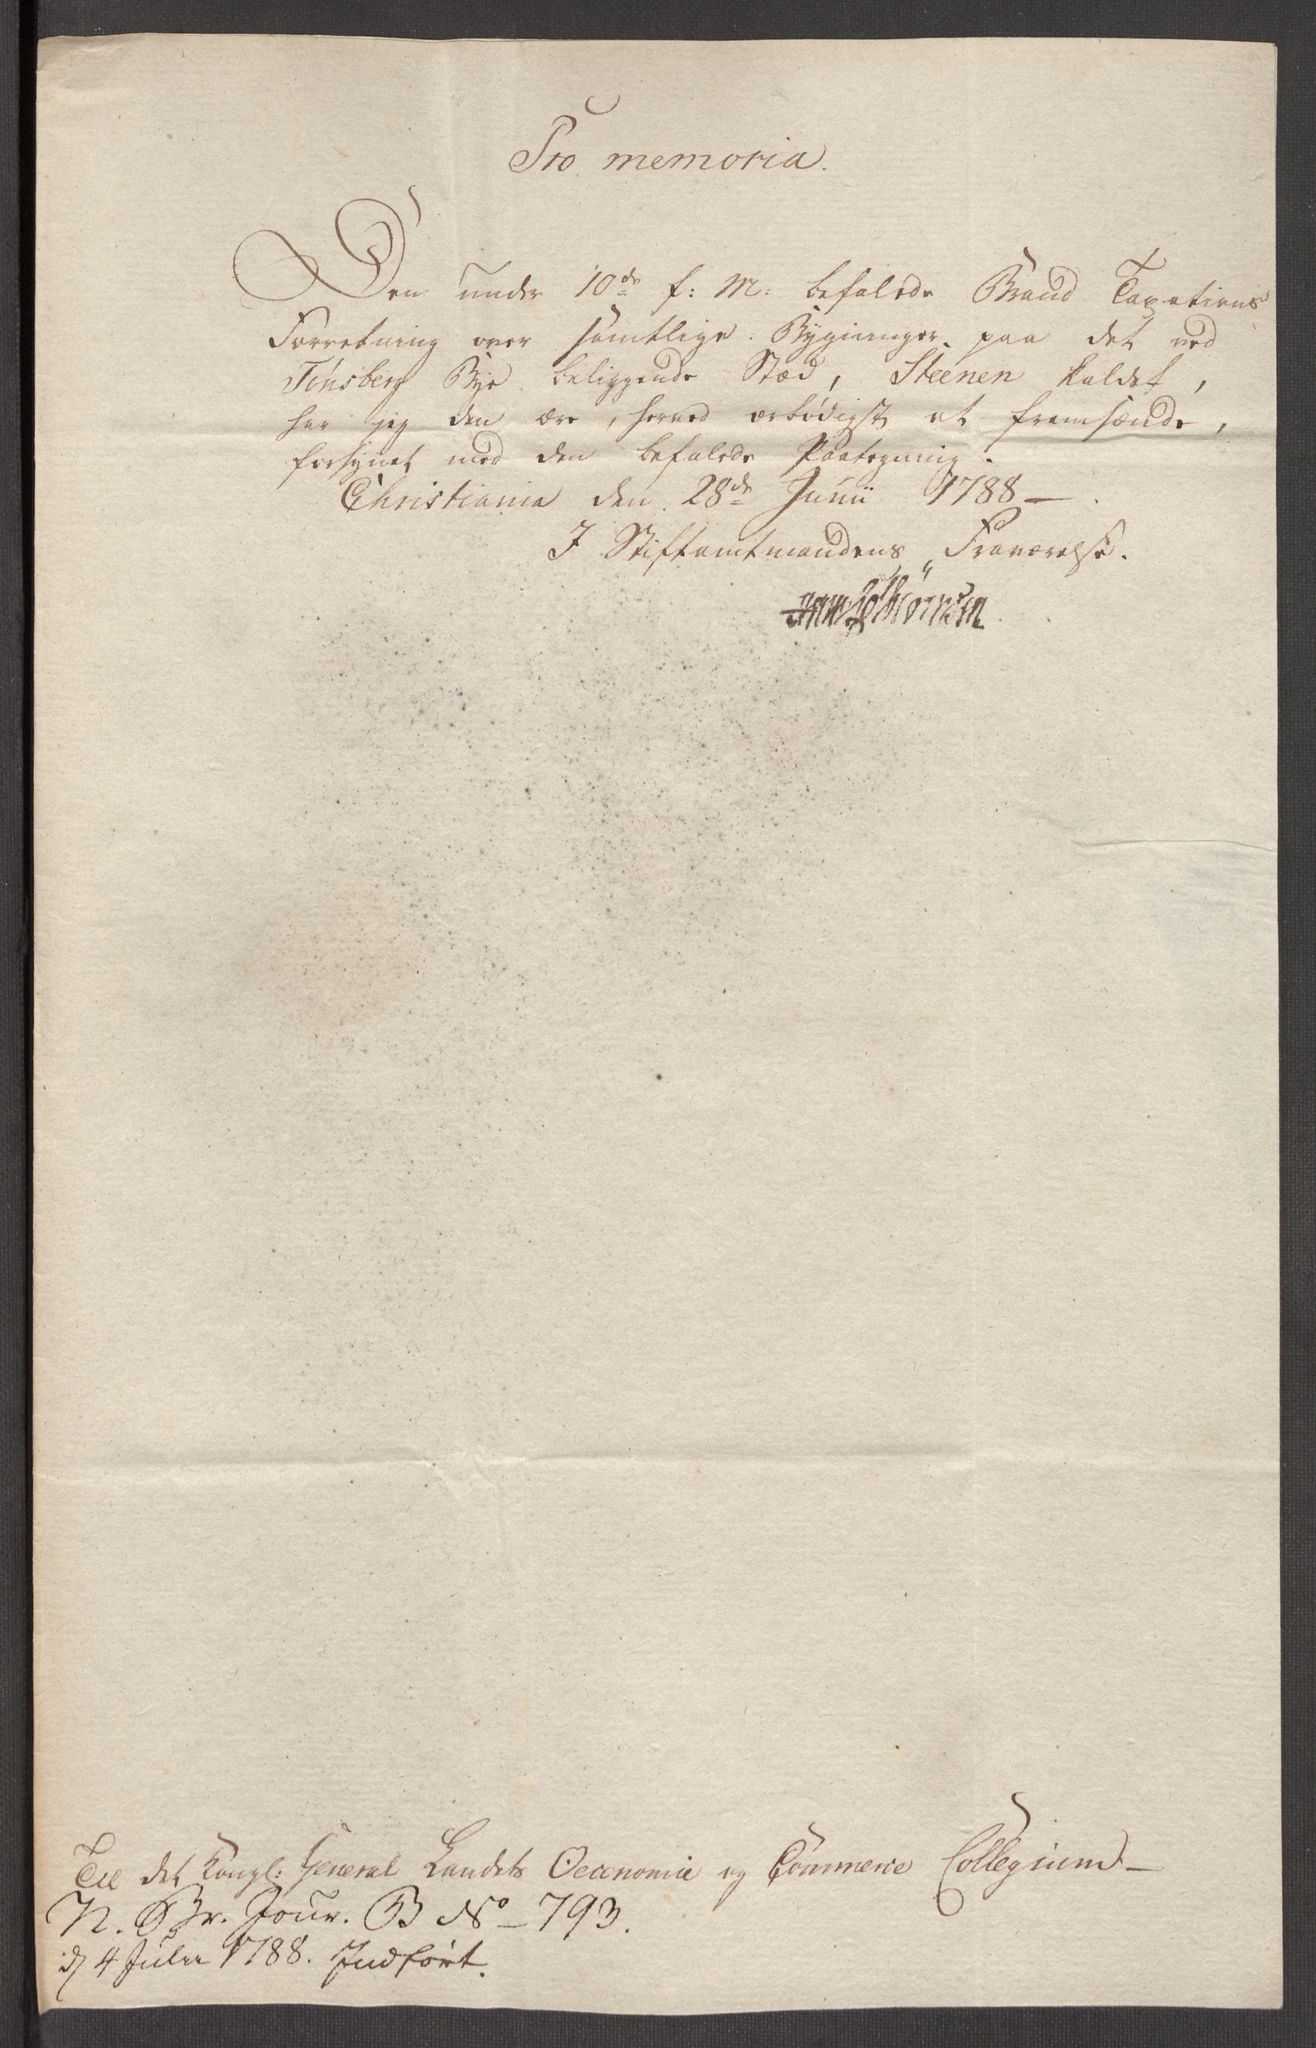 Pro memoria.
Den under 10de f: M: befalede Brand Taxations
Forretning over samtlige Bygninger paa det ved
Tønsberg Bye beliggende Stæd, Steenen kaldet,
har jeg den ære, herved ærbødigst at fremsænde,
forsynet med den befalede Paategning.
Christiania den 28de Junii 1788 —
I Stiftamtmandens Fraværelse.
Til det Kongl: General Landets Oeconomie og Commerce Collegium —
N. Br. Jour. B No 793.
d 4 Julii 1788. Indført.